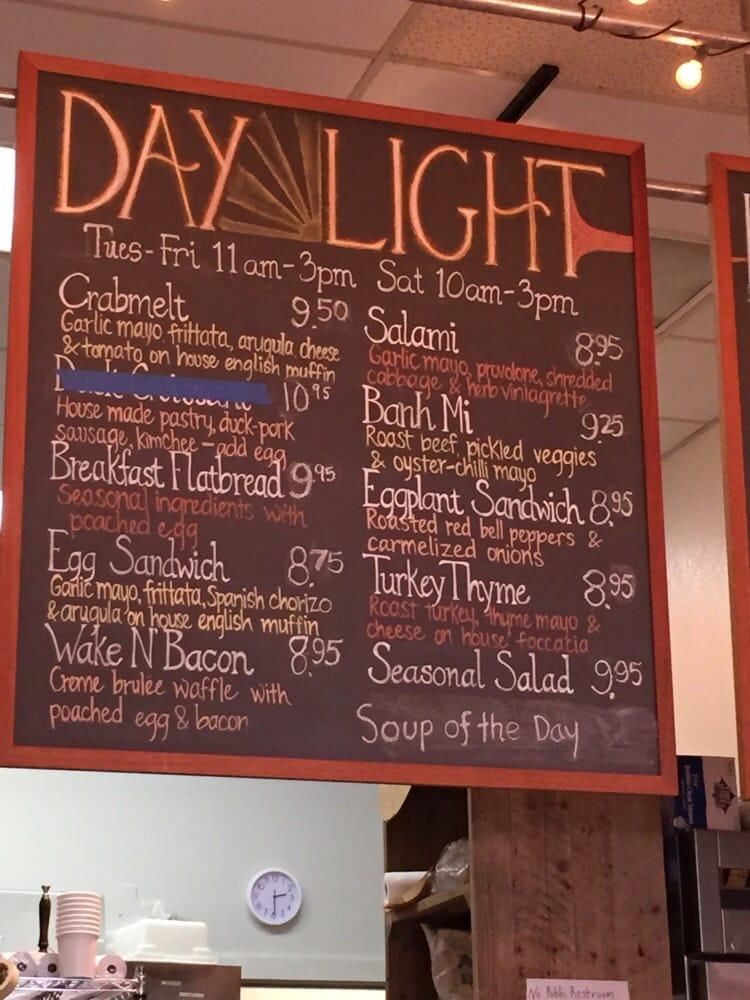 DAY LIGHT
Tues-Fri 11am-3pm Sat 10am-3pm
Crabmelt 9.50
Garlic mayo, frittata, arugula, cheese
& tomato on house english muffin
10.95
House made pastry, duck-pork
sausage, kimchee - add egg
Breakfast Flatbread 9.95
Seasonal ingredients with
poached egg
Egg Sandwich 8.75
Garlic mayo, frittata, Spanish chorizo
& arugula on house english muffin
Wake N Bacon 8.95
Creme brulee waffle with
poached egg & bacon
Salami 8.95
Garlic mayo, provolone, shredded
cabbage & herb viniagrette
Banh Mi 9.25
Roast beef, pickled veggies
& oyster-chilli mayo
Eggplant Sandwich 8.95
Roasted red bell peppers &
carmelized onions
Turkey Thyme 8.95
Roast turkey, thyme mayo &
cheese on house foccatia
Seasonal Salad 9.95
Soup of the Day
No Public Restroom